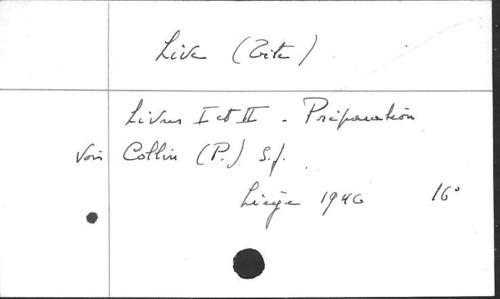 Live (Tite)
Livres I et II - Préparation
Voir Collin (P.) S.J.
Liège 1940 16°